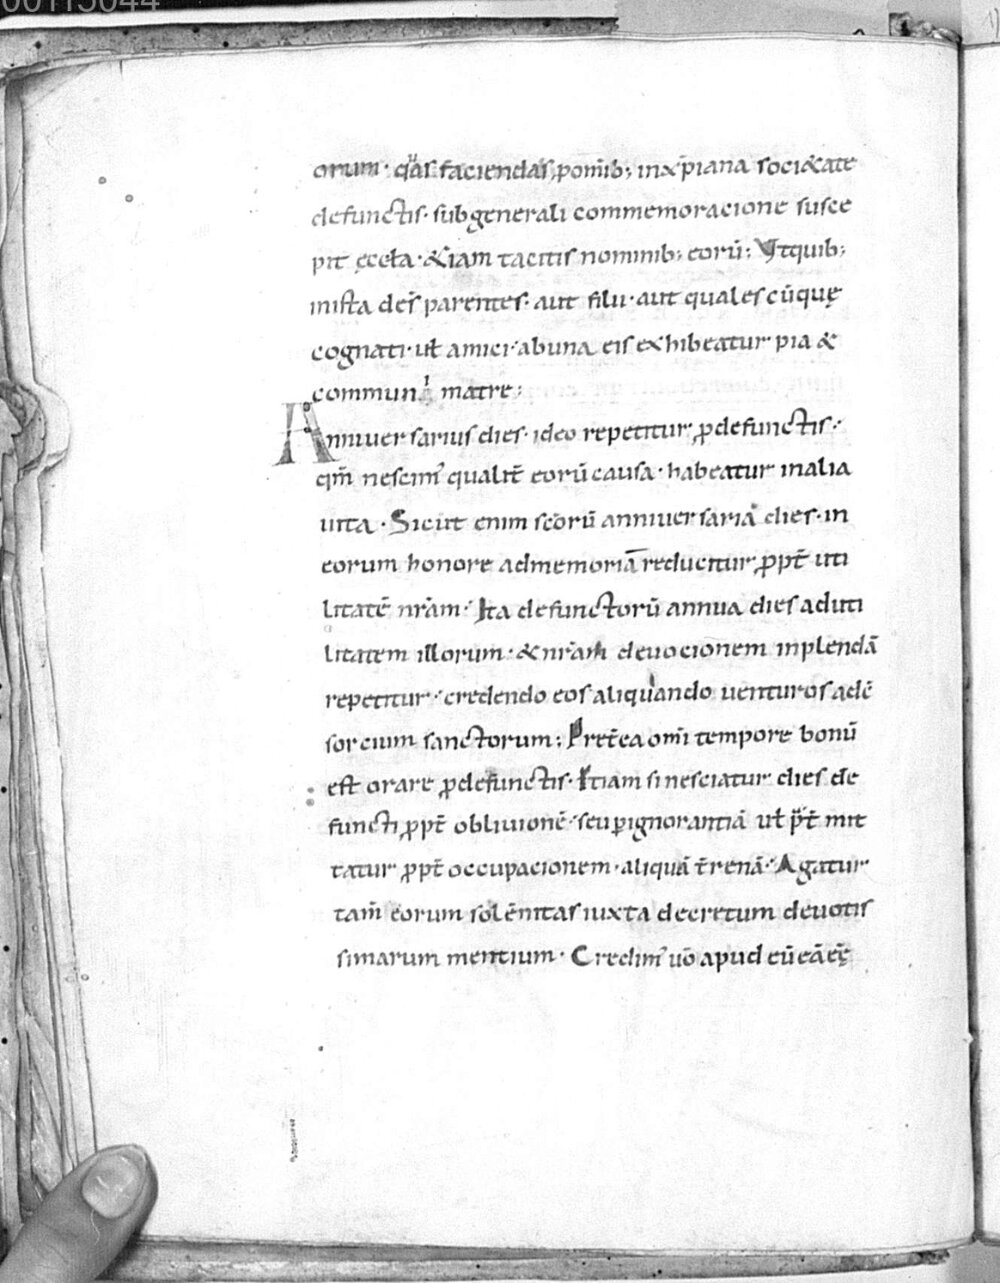 00115044
orum · q̈as faciendas, p om̄ib; in xp̄iana soci&ate
defunctis · sub generali commemoracione susce
pit ęcct̄a · &iam tacitis nominib; eorū; Vt quib;
in ista des̄ parentes · aut filii · aut quales cūquę
cognati · ut̄ amici · ab una eis exhibeatur pia &
commun i matre;
Anniuersarius dies · ideo repetitur p defunctis ·
qm̄ nescim' qualit̄ eorū causa · habeatur in alia
uita · Sicut enim sc̄orū anniuersaria dies · in
eorum honore ad memoriā reducitur, ppt̄ uti
litatē nr̄am · Ita defunctorū annua dies ad uti
litatem illorum · & nr̄am deuocionem inplendā
repetitur · credendo eos aliquando uenturos ad ē
sorcium sanctorum; Pret̄ea om̄i tempore bonū
est orare p defunctis · Etiam si nesciatur dies de
functi, ppt̄ obliuionē · seu p ignorantiā ut̄ p̈t̄ mit
tatur, ppt̄ occupacionem · aliquā t̄renā · Agatur
tam̄ eorum solēnitas iuxta decretum deuotis
simarum mentium · Credim' uō apud eū eā eę̄